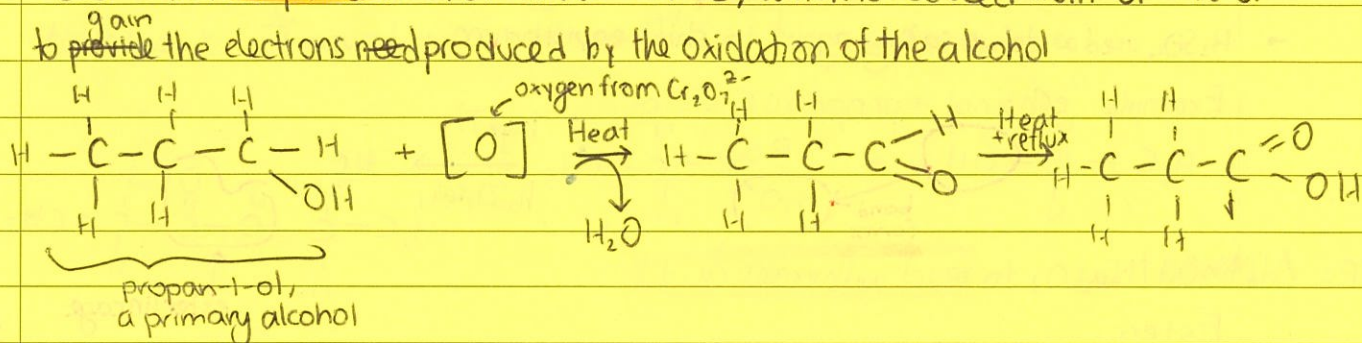 gain
to provide the electrons need produced by the oxidation of the alcohol
oxygen from Cr₂O₇²⁻
H H H H H H H
H — C — C — C — H + [O] Heat H — C — C — C H O Heat + reflux H — C — C — C O OH
H H OH H₂O H H H H
propan-1-ol,
a primary alcohol